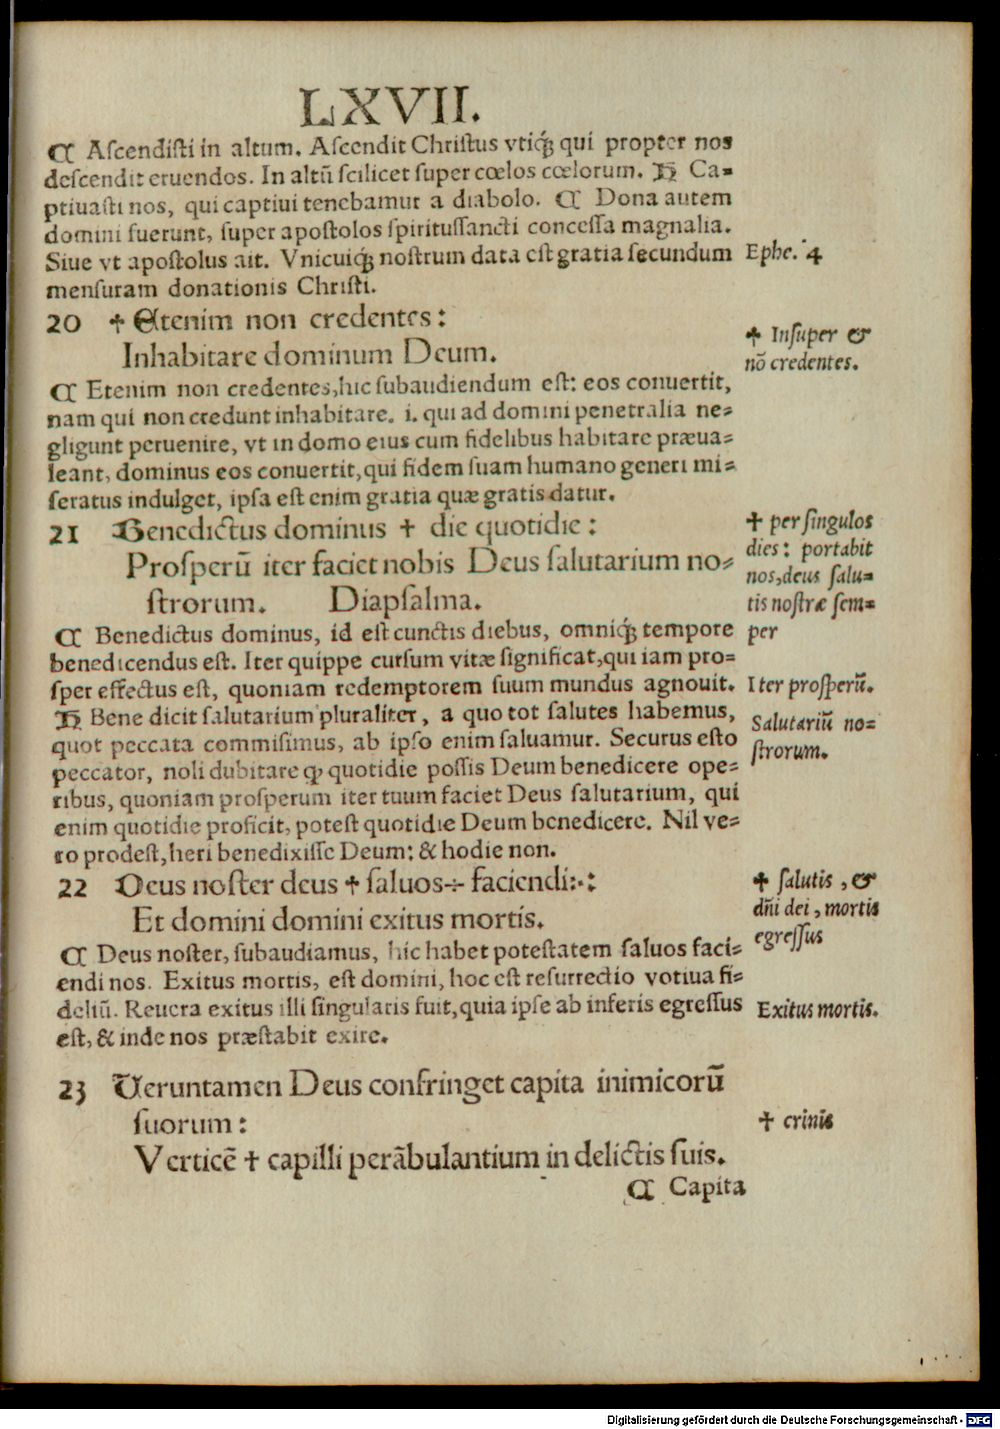 LXVII.
₵ Ascendisti in altum. Ascendit Christus vtiq́ꝫ qui propter nos
descendit eruendos. In altū scilicet super cœlos cœlorum. Ca-
ptiuasti nos, qui captiui tenebamur a diabolo. ₵ Dona autem
domini fuerunt, super apostolos spiritussancti concessa magnalia.
Siue vt apostolus ait. Vnicuiq́ꝫ nostrum data est gratia secundum
Ephe. 4
mensuram donationis Christi.
20 ✝ Etenim non credentes:
Inhabitare dominum Deum.
✝ Insuper &
nō credentes.
₵ Etenim non credentes, hic subaudiendum est: eos conuertit,
nam qui non credunt inhabitare. i. qui ad domini penetralia ne-
gligunt peruenire, vt in domo eius cum fidelibus habitare præua-
leant, dominus eos conuertit, qui fidem suam humano generi mi-
seratus indulget, ipsa est enim gratia quæ gratis datur.
21 Benedictus dominus ✝ die quotidie:
Prosperū iter faciet nobis Deus salutarium no-
strorum. Diapsalma.
✝ per singulos
dies: portabit
nos, deus salu-
tis nostræ sem-
per
₵ Benedictus dominus, id est cunctis diebus, omniq́ꝫ tempore
benedicendus est. Iter quippe cursum vitæ significat, qui iam pro-
sper effectus est, quoniam redemptorem suum mundus agnouit.
Iter prosperū.
Bene dicit salutarium pluraliter, a quo tot salutes habemus,
Salutariū no-
strorum.
quot peccata commisimus, ab ipso enim saluamur. Securus esto
peccator, noli dubitare ꝙ quotidie possis Deum benedicere ope-
ribus, quoniam prosperum iter tuum faciet Deus salutarium, qui
enim quotidie proficit, potest quotidie Deum benedicere. Nil ve-
ro prodest, heri benedixisse Deum: & hodie non.
22 Deus noster deus ✝ saluos ÷ faciendi:·:
Et domini domini exitus mortis.
✝ salutis, &
dn̄i dei, mortis
egressus
₵ Deus noster, subaudiamus, hic habet potestatem saluos faci-
endi nos. Exitus mortis, est domini, hoc est resurrectio votiua fi-
deliū. Reuera exitus illi singularis fuit, quia ipse ab inferis egressus
Exitus mortis.
est, & inde nos præstabit exire.
23 Veruntamen Deus confringet capita inimicorū
suorum:
✝ crinis
Verticē ✝ capilli perābulantium in delictis suis.
₵ Capita
Digitalisierung gefördert durch die Deutsche Forschungsgemeinschaft - DFG